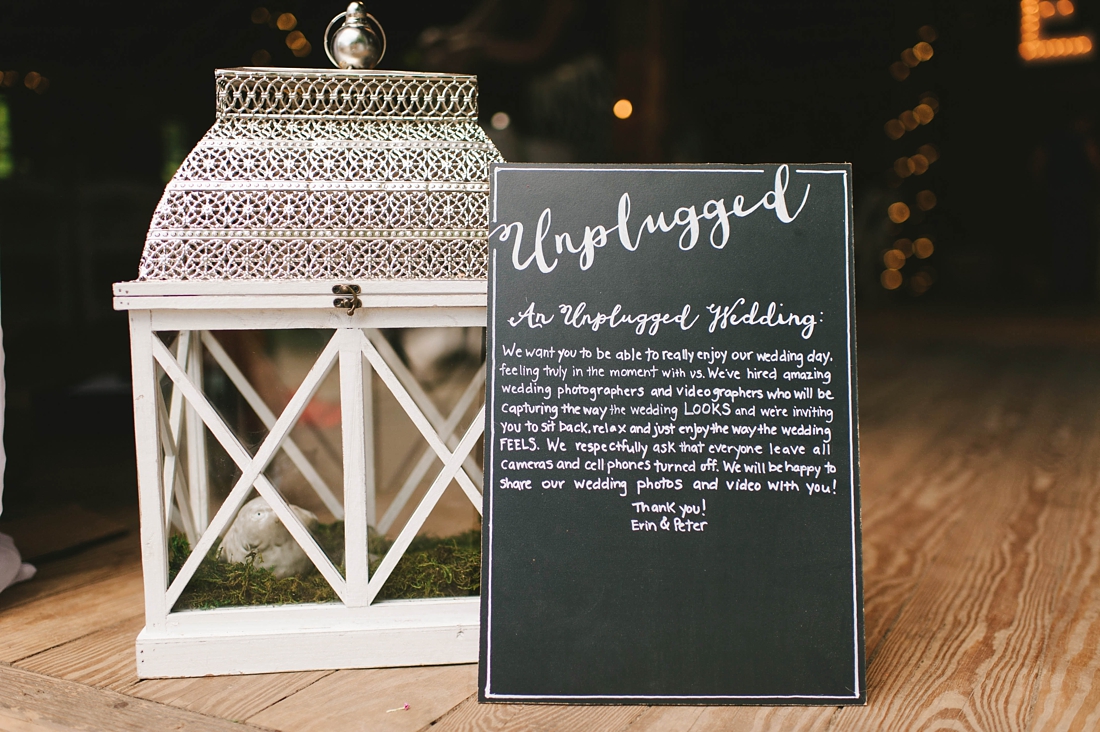 E
Unplugged
An Unplugged Wedding:
We want you to be able to really enjoy our wedding day,
feeling truly in the moment with us. We've hired amazing
wedding photographers and videographers who will be
capturing the way the wedding LOOKS and we're inviting
you to sit back, relax and just enjoy the way the wedding
FEELS. We respectfully ask that everyone leave all
cameras and cell phones turned off. We will be happy to
share our wedding photos and video with you!
Thank you!
Erin & Peter